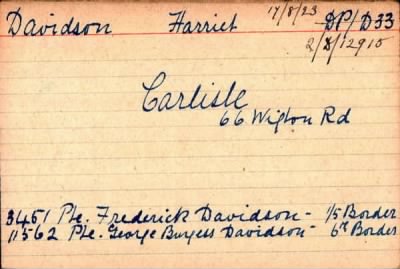 Davidson Harriet 17/8/23 DP/D33
2/D/12915
Carlisle
66 Wigton Rd
3451 Pte. Frederick Davidson - 1/5 Border
11562 Pte. George Burgess Davidson - 6th Border